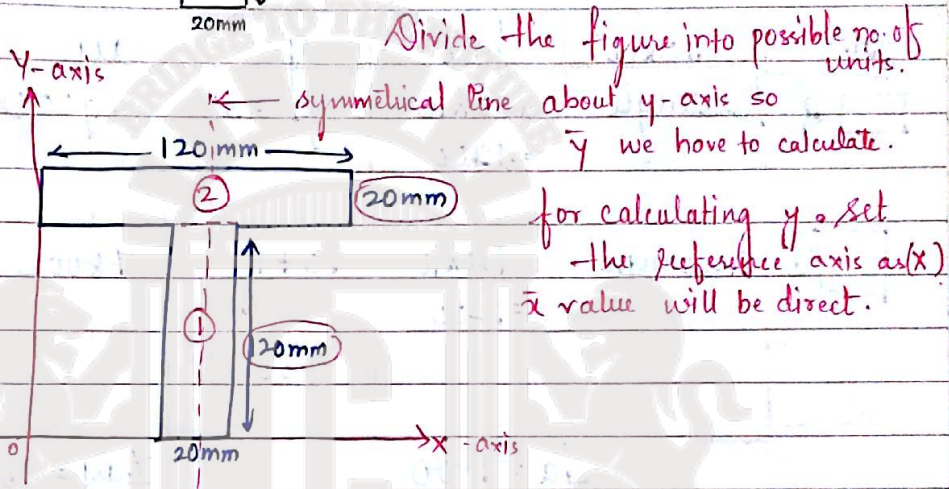 20mm
Divide the figure into possible no. of
units.
Y-axis
symmetrical line about y-axis so
ȳ we have to calculate.
120mm
② 20mm
for calculating y. set
the reference axis as (x)
x̄ value will be direct.
①
120mm
0
20mm
x-axis